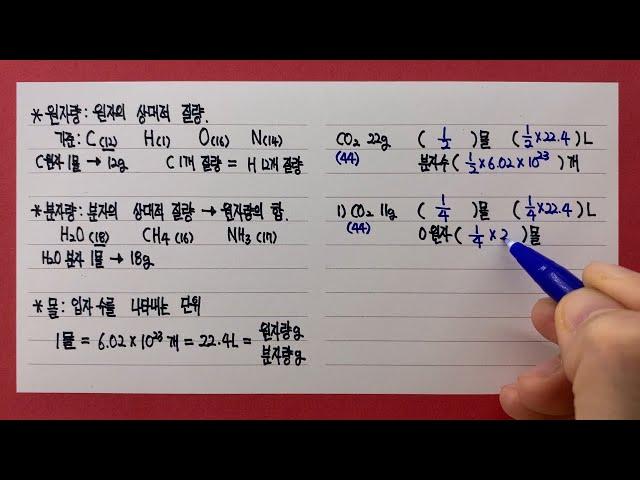 * 원자량 : 원자의 상대적 질량.
기준 : C(12) H(1) O(16) N(14)
C원자 1몰 → 12g C 1개 질량 = H 12개 질량
* 분자량 : 분자의 상대적 질량 → 원자량의 합.
H₂O(18) CH₄(16) NH₃(17)
H₂O 분자 1몰 → 18g
* 몰 : 입자 수를 나타내는 단위
1몰 = 6.02 × 10²³ 개 = 22.4L = 원자량g
분자량g
CO₂ 22g ( 1/2 )몰 ( 1/2 × 22.4 ) L
(44) 분자수 ( 1/2 × 6.02 × 10²³ ) 개
1) CO₂ 11g ( 1/4 )몰 ( 1/4 × 22.4 ) L
(44) O 원자 ( 1/4 × 2 )몰